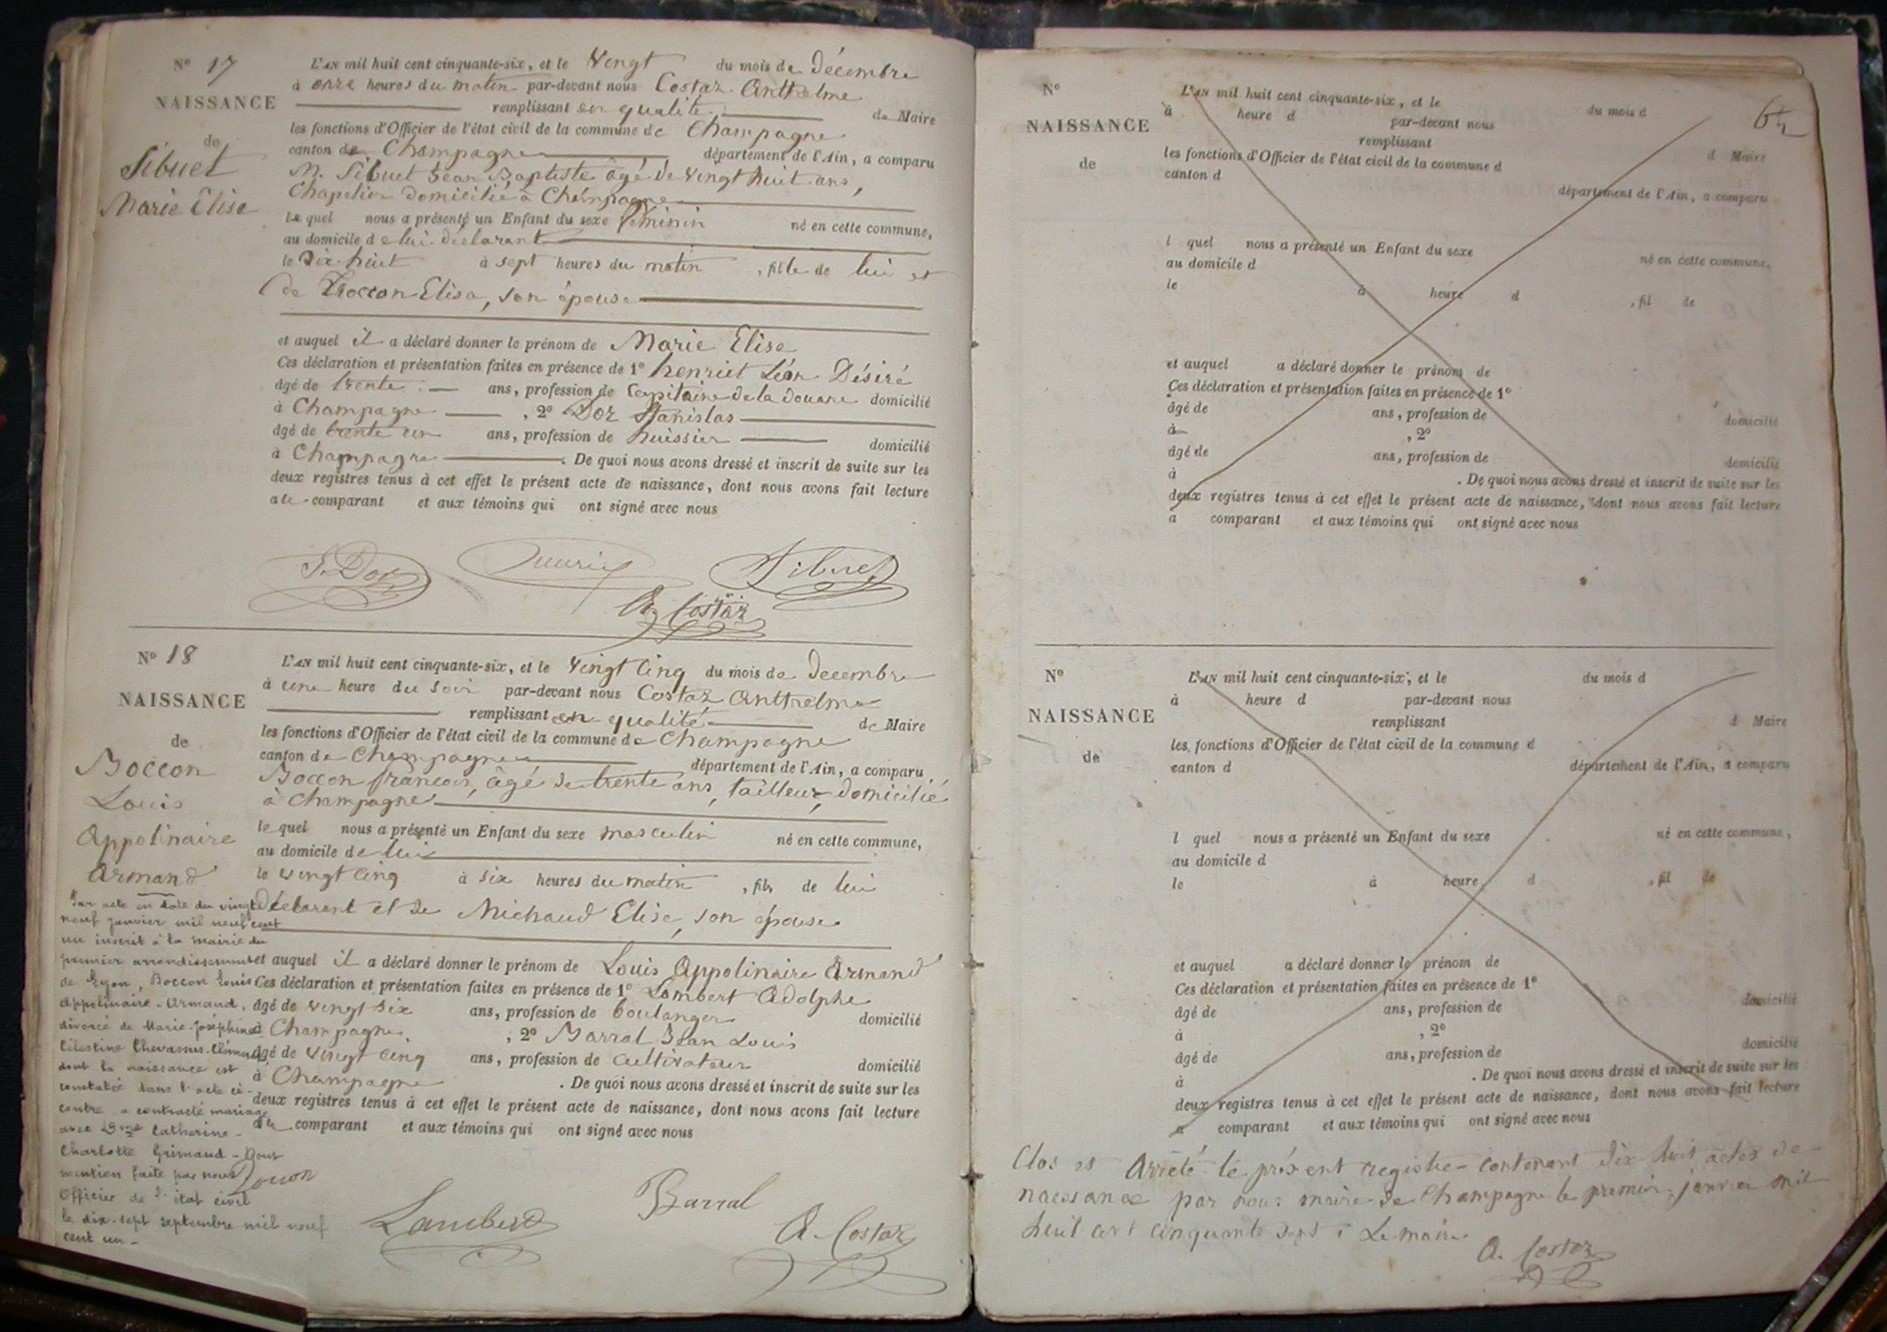 N° 17
NAISSANCE
de
Sibuet
Marie Elise
L'AN mil huit cent cinquante-six, et le vingt du mois de décembre
à onze heures du matin par-devant nous Costaz Anthelme
remplissant en qualité de Maire
les fonctions d'Officier de l'état civil de la commune de Champagne
canton de Champagne département de l'Ain, a comparu
M. Sibuet Jean Baptiste âgé de vingt huit ans,
Chapelier domicilié à Champagne
le quel nous a présenté un Enfant du sexe féminin né en cette commune,
au domicile de lui déclarant
le dix huit à sept heures du matin, fille de lui et
de Boccon Elisa, son épouse
et auquel il a déclaré donner le prénom de Marie Elise
Ces déclaration et présentation faites en présence de 1° henriet Léon Désiré
âgé de trente ans, profession de Capitaine de la douane domicilié
à Champagne, 2° Doz Stanislas
âgé de trente un ans, profession de huissier domicilié
à Champagne. De quoi nous avons dressé et inscrit de suite sur les
deux registres tenus à cet effet le présent acte de naissance, dont nous avons fait lecture
au comparant et aux témoins qui ont signé avec nous
S. Doz Sibuet
A. Costaz
N° 18
NAISSANCE
de
Boccon
Louis
Appolinaire
Armand
L'AN mil huit cent cinquante-six, et le vingt cinq du mois de Décembre
à une heure du soir par-devant nous Costaz Anthelme
remplissant en qualité de Maire
les fonctions d'Officier de l'état civil de la commune de Champagne
canton de Champagne département de l'Ain, a comparu
Boccon françois, âgé de trente ans, tailleur, domicilié
à Champagne
le quel nous a présenté un Enfant du sexe masculin né en cette commune,
au domicile de lui
le vingt cinq à six heures du matin, fils de lui
déclarant et de Michaud Elise, son épouse
et auquel il a déclaré donner le prénom de Louis Appolinaire Armand
Ces déclaration et présentation faites en présence de 1° Lambert Adolphe
âgé de vingt six ans, profession de boulanger domicilié
à Champagne, 2° Barral Jean Louis
âgé de vingt cinq ans, profession de cultivateur domicilié
à Champagne. De quoi nous avons dressé et inscrit de suite sur les
deux registres tenus à cet effet le présent acte de naissance, dont nous avons fait lecture
au comparant et aux témoins qui ont signé avec nous
Par acte en date du vingt
neuf janvier mil neuf cent
un inscrit à la mairie du
premier arrondissement
de Lyon, Boccon Louis
Appolinaire-Armand,
divorcé de Marie-Joséphine
Célestine Chevassus-Clément
dont la naissance est
constatée dans l'acte ci-
contre a contracté mariage
avec Dme Catherine-
Charlotte Grimaud - Dont
mention faite par nous
Officier de l'état civil
le dix-sept septembre mil neuf
cent un -
Boccon
Lambert
Barral
A. Costaz
N°
NAISSANCE
de
L'AN mil huit cent cinquante-six, et le du mois d
à heure d par-devant nous
remplissant d Maire
les fonctions d'Officier de l'état civil de la commune d
canton d département de l'Ain, a comparu
l quel nous a présenté un Enfant du sexe né en cette commune,
au domicile d
le à heure d, fil de
et auquel a déclaré donner le prénom de
Ces déclaration et présentation faites en présence de 1°
âgé de ans, profession de domicilié
à, 2°
âgé de ans, profession de domicilié
à. De quoi nous avons dressé et inscrit de suite sur les
deux registres tenus à cet effet le présent acte de naissance, dont nous avons fait lecture
a comparant et aux témoins qui ont signé avec nous
N°
NAISSANCE
de
L'AN mil huit cent cinquante-six, et le du mois d
à heure d par-devant nous
remplissant d Maire
les fonctions d'Officier de l'état civil de la commune d
canton d département de l'Ain, a comparu
l quel nous a présenté un Enfant du sexe né en cette commune,
au domicile d
le à heure d, fil de
et auquel a déclaré donner le prénom de
Ces déclaration et présentation faites en présence de 1°
âgé de ans, profession de domicilié
à, 2°
âgé de ans, profession de domicilié
à. De quoi nous avons dressé et inscrit de suite sur les
deux registres tenus à cet effet le présent acte de naissance, dont nous avons fait lecture
a comparant et aux témoins qui ont signé avec nous
Clos et Arrêté le présent registre contenant dix huit actes de
naissance par nous maire de Champagne le premier janvier mil
huit cent cinquante sept. Le maire
A. Costaz